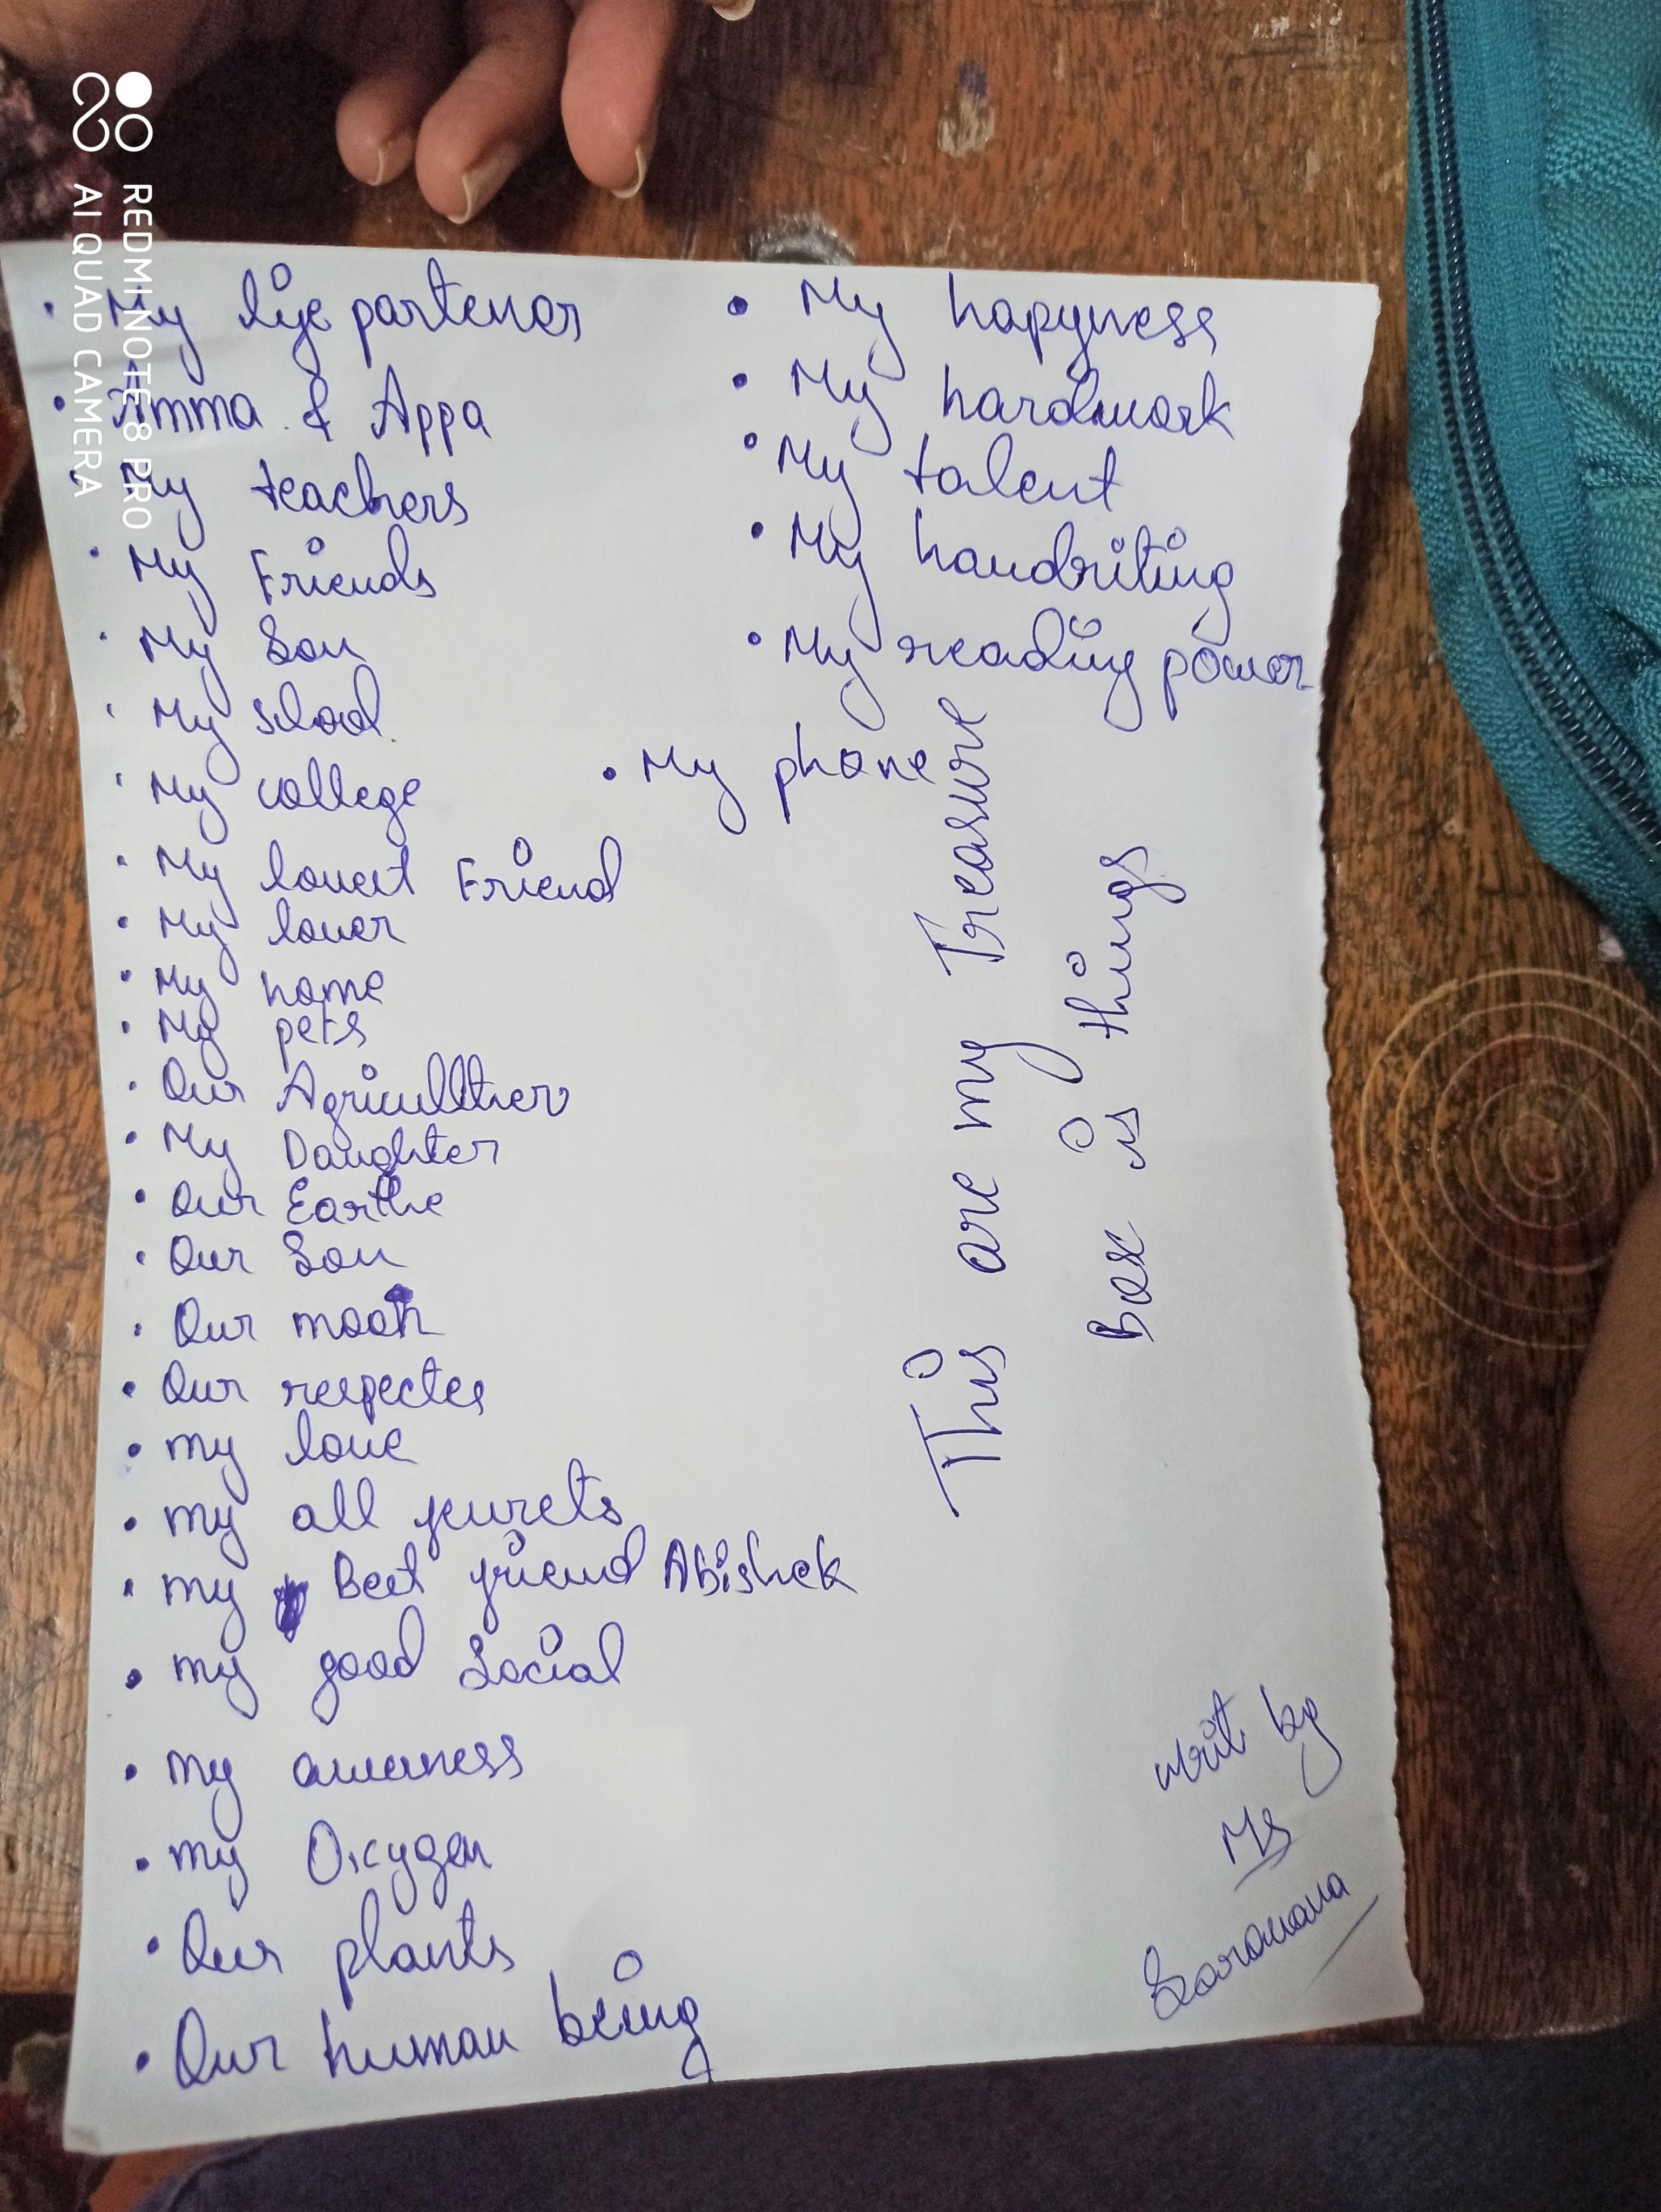 REDMI NOTE 8 PRO
AI QUAD CAMERA
• My life partenar
• Amma & Appa
• My teachers
• My Friends
• My Son
• My school.
• My college
• My lovest Friend
• My lover
• My home
• My pets
• Our Agricullther
• My Daughter
• Our Earthe
• Our Son
• Our moon
• Our respectes
• my love
• my all
• my Best friend Abishek
• my good Social
• my
• my Oxygen
• Our plants
• Our human being
• My hapyness
• My hardwork
• My talent
• My handriting
• My reading power
• My phone
This are my Treasure
Box is things
writ by
Ms